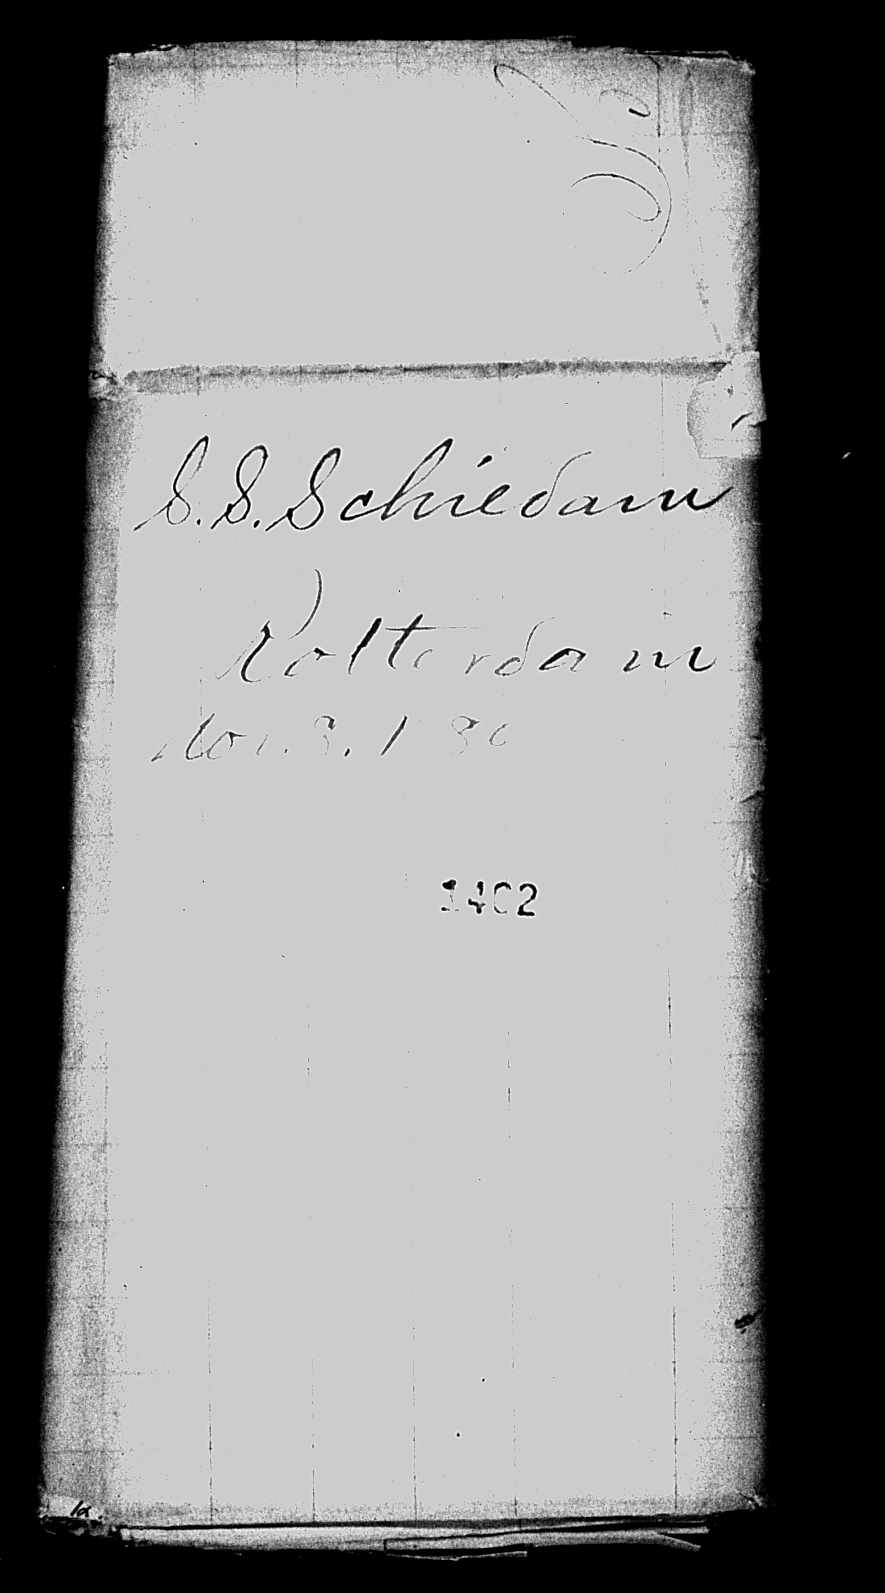 S. S. Schiedam
Rotterdam
Nov. 3. 1886
1402